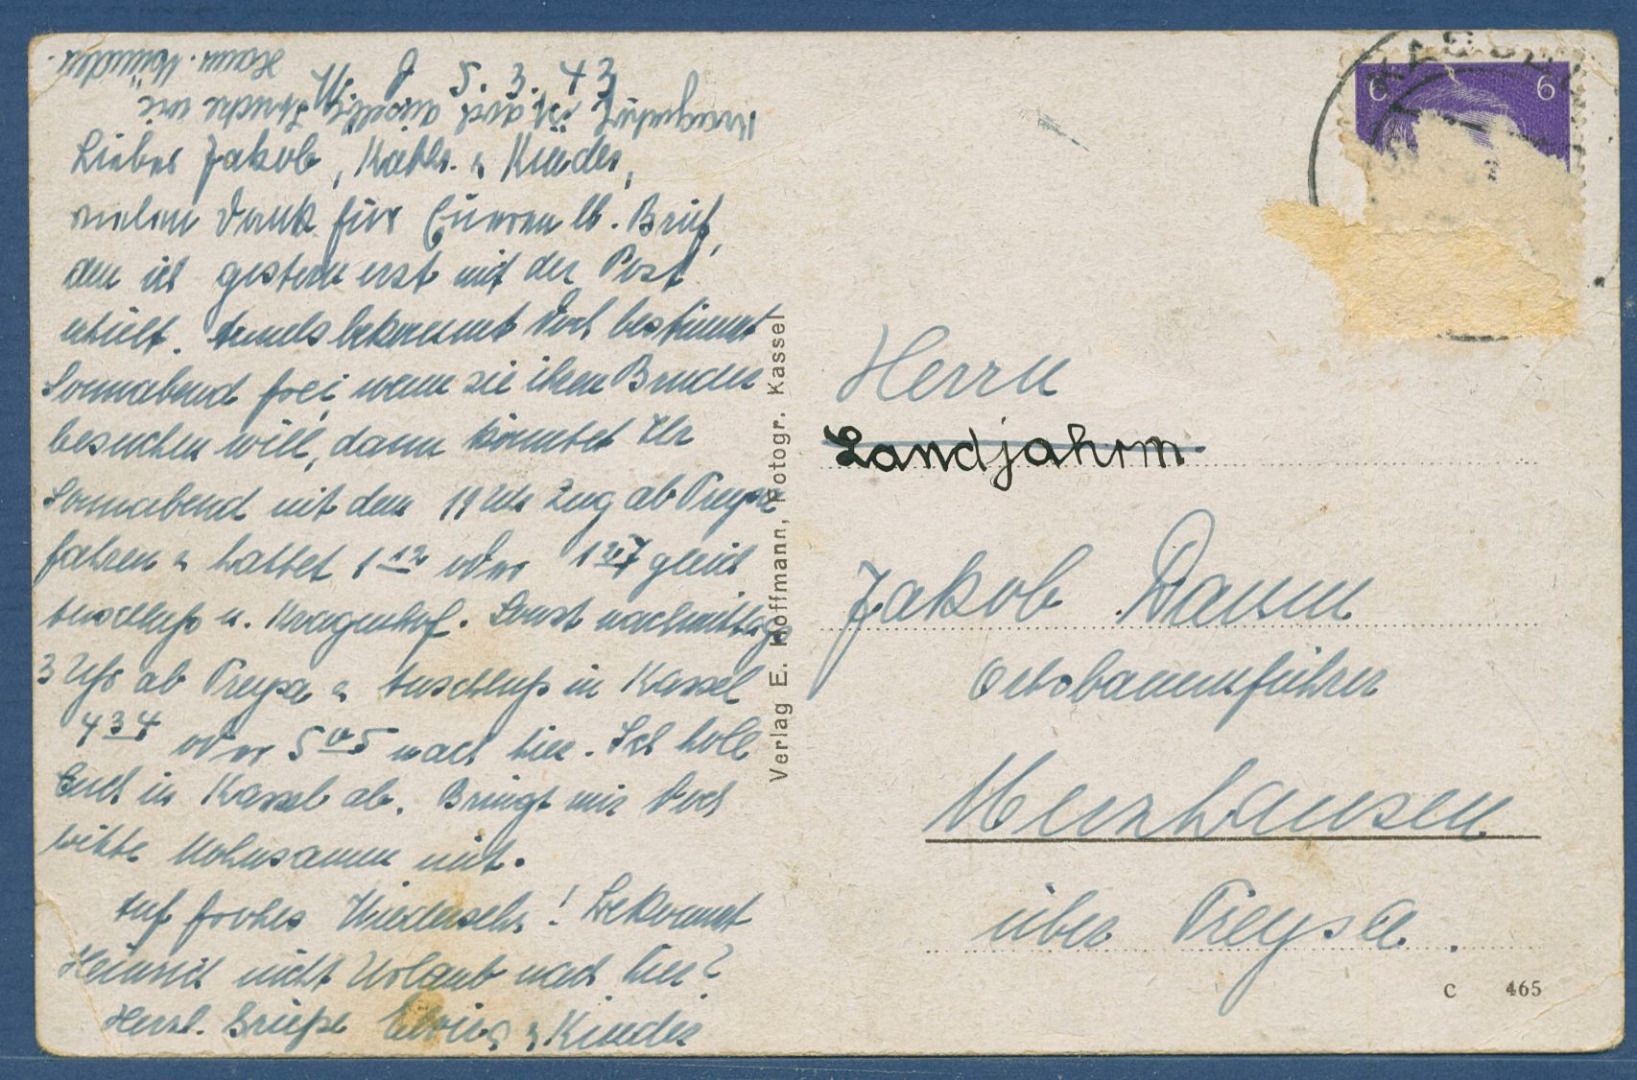 5.3.43
Lieber Jakob, Käthi. u Kinder,
vielen Dank für Eueren lb. Brief,
den ich gestern erst mit der Post
erhielt. bekommt doch bestimmt
Sonnabend frei, wenn sie ihren Bruder
besuchen will, dann könntet Ihr
Sonnabend mit dem 19 Uhr Zug ab Treysa
fahren u hättet 1 12 oder gleich
Anschluß n. Kragenhof. Sonst nachmittags
3 Uhr ab Treysa u Anschluß in Kassel
4 34 oder 5 05 nach hier. Ich hole
Euch in Kassel ab. Bringt mir doch
bitte Mohnsamen mit.
Auf frohes Wiedersehn! Bekommt
Heinrich nicht Urlaub nach hier?
Herzl. Grüße u Kinder
Verlag E. Hoffmann, Fotogr. Kassel
KASSEL
6 6
Herrn
Landjahrm
Jakob Damm
Merzhausen
über Treysa.
C 465